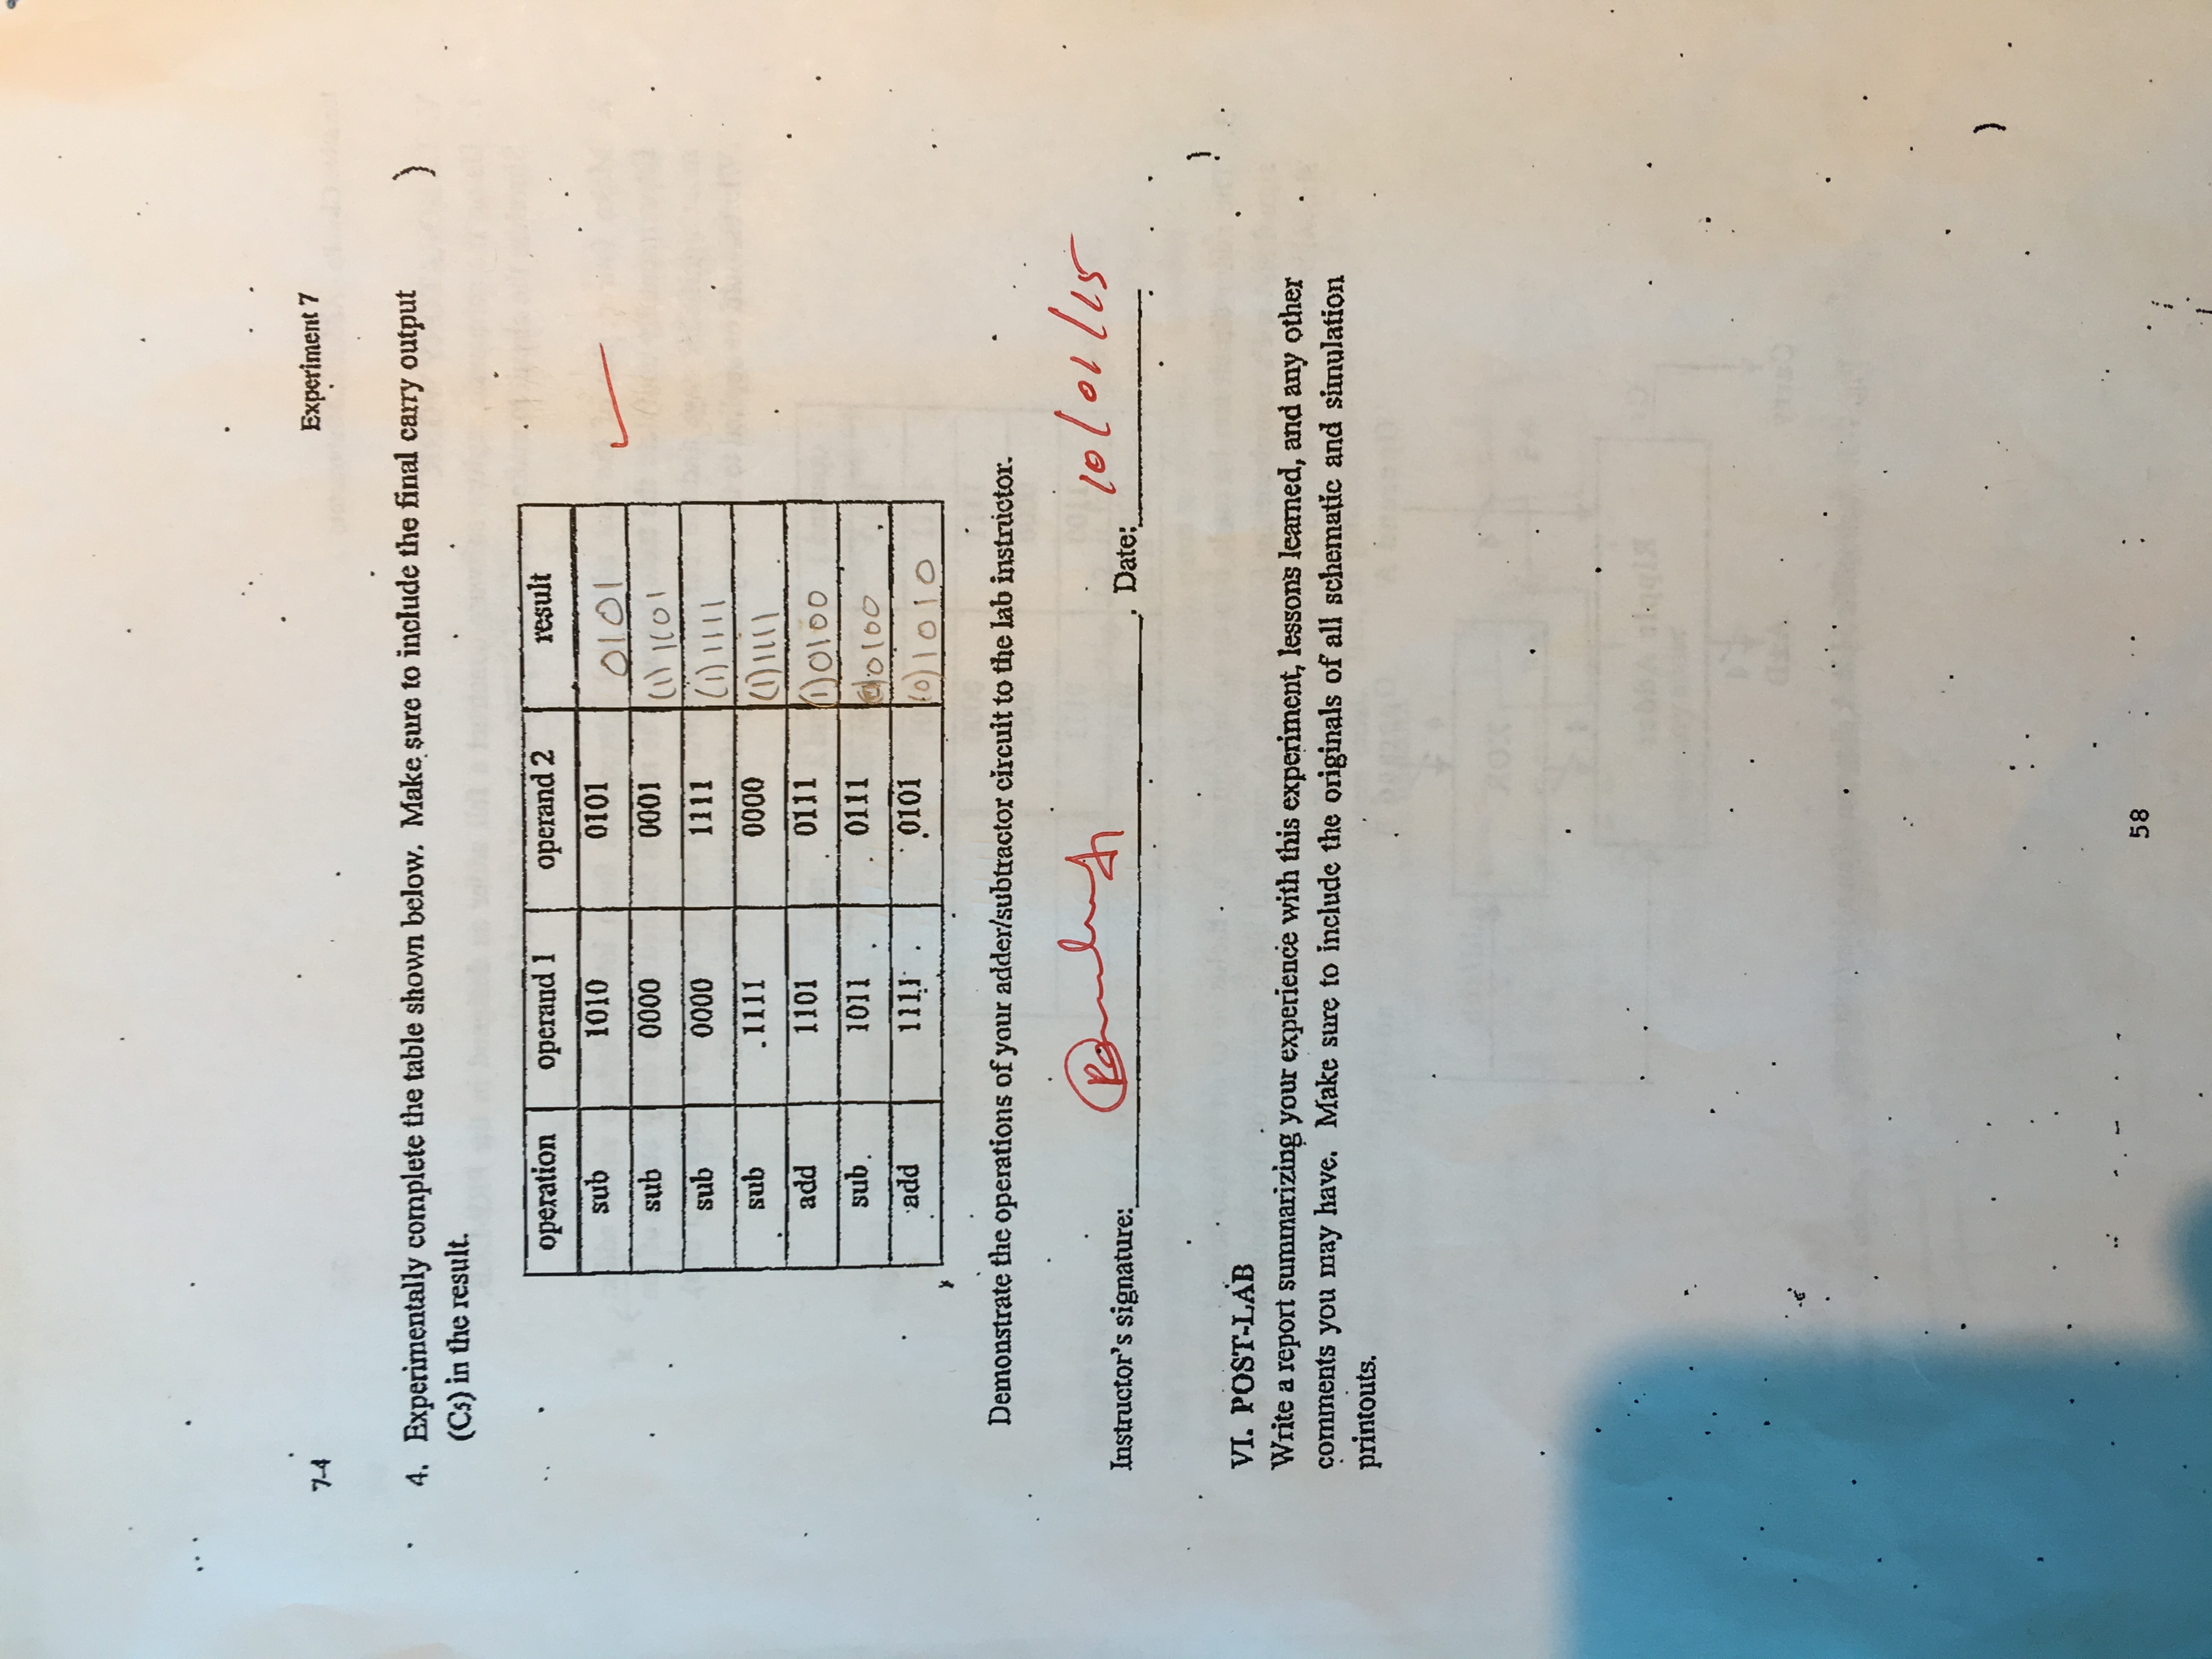 7-4 Experiment 7
4. Experimentally complete the table shown below. Make sure to include the final carry output
(C5) in the result.
operation operand 1 operand 2 result
sub 1010 0101 0101
sub 0000 0001 (1) 1101
sub 0000 1111 (1) 1111
sub 1111 0000 (1) 1111
add 1101 0111 (1) 0100
sub 1011 0111 0100
add 1111 0101 (0) 1010
Demonstrate the operations of your adder/subtractor circuit to the lab instructor.
Instructor's signature: Date: 10/01/15
VI. POST-LAB
Write a report summarizing your experience with this experiment, lessons learned, and any other
comments you may have. Make sure to include the originals of all schematic and simulation
printouts.
58